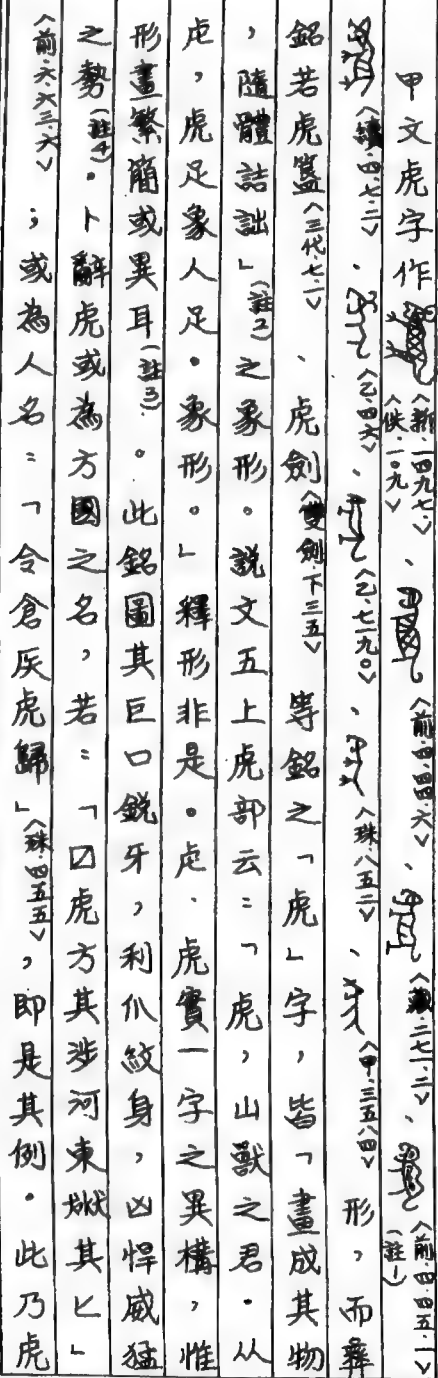 甲文虎字作〈新.一四九七.〉〈佚.一〇九〉、〈前.四.四四.六〉、〈藏.二七一.二〉、〈前.四.四五.一〉(註1)
〈續.四.七.二〉、〈乙.四六〉、〈乙.七一九〇〉、〈珠.八五二〉、〈甲.三五八四〉形,而彝
銘若虎簋〈三代.七.一〉、虎劍〈雙劍.下三五〉等銘之「虎」字,皆「畫成其物
,隨體詰詘」(註2)之象形。說文五上虎部云:「虎,山獸之君.从
虍,虎足象人足.象形。」釋形非是。虍.虎實一字之異構,惟
形畫繁簡或異耳(註3)。此銘圖其巨口銳牙,利爪紋身,凶悍威猛
之勢(註4)。卜辭虎或為方國之名,若:「囗虎方其涉河東𤞞其匕」
〈前.六.六三.六〉;或為人名:「令倉灰虎歸」〈珠.四五五〉,即是其例。此乃虎